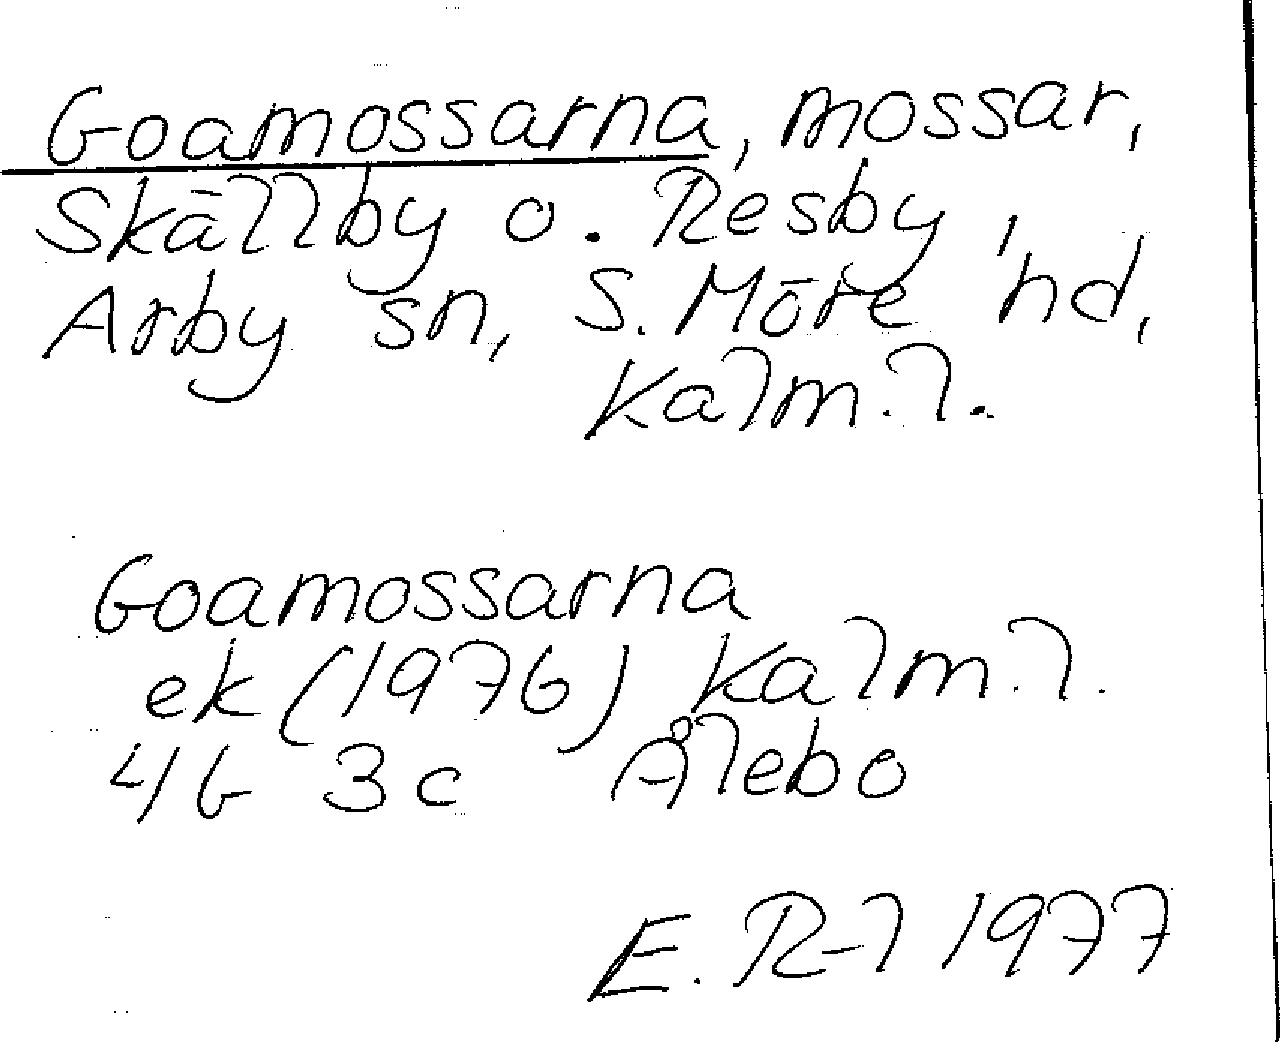 Goamossarna, mossar,
Skällby o. Resby,
Arby sn, S. Möre hd,
Kalm. l.
Goamossarna
ek (1976) Kalm. l.
4G 3c Ålebo
E. R-l 1977